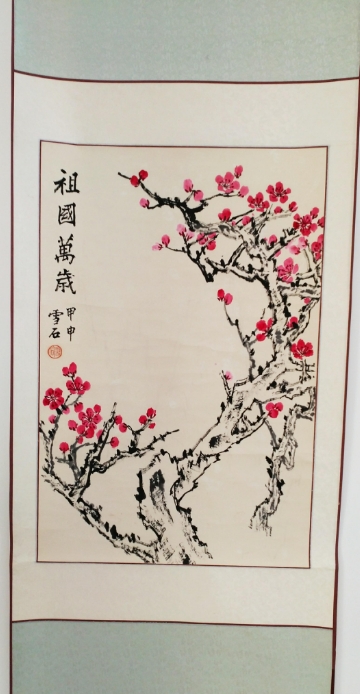 祖國萬歲
甲申
雪石